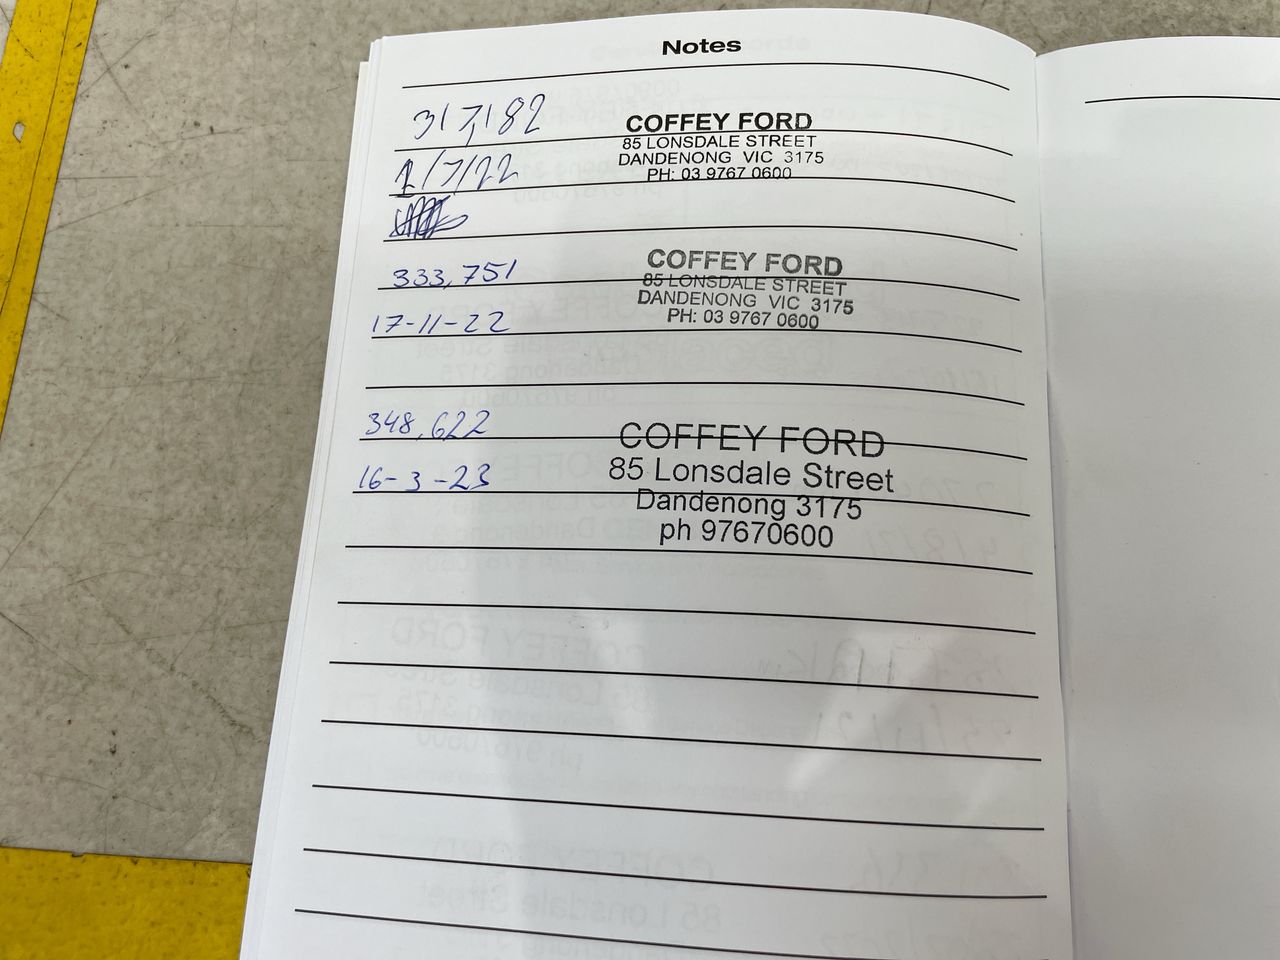 Notes
317,182
COFFEY FORD
85 LONSDALE STREET
DANDENONG VIC 3175
PH: 03 9767 0600
1/7/22
333,751
COFFEY FORD
85 LONSDALE STREET
DANDENONG VIC 3175
PH: 03 9767 0600
17-11-22
348,622
COFFEY FORD
85 Lonsdale Street
Dandenong 3175
ph 97670600
16-3-23